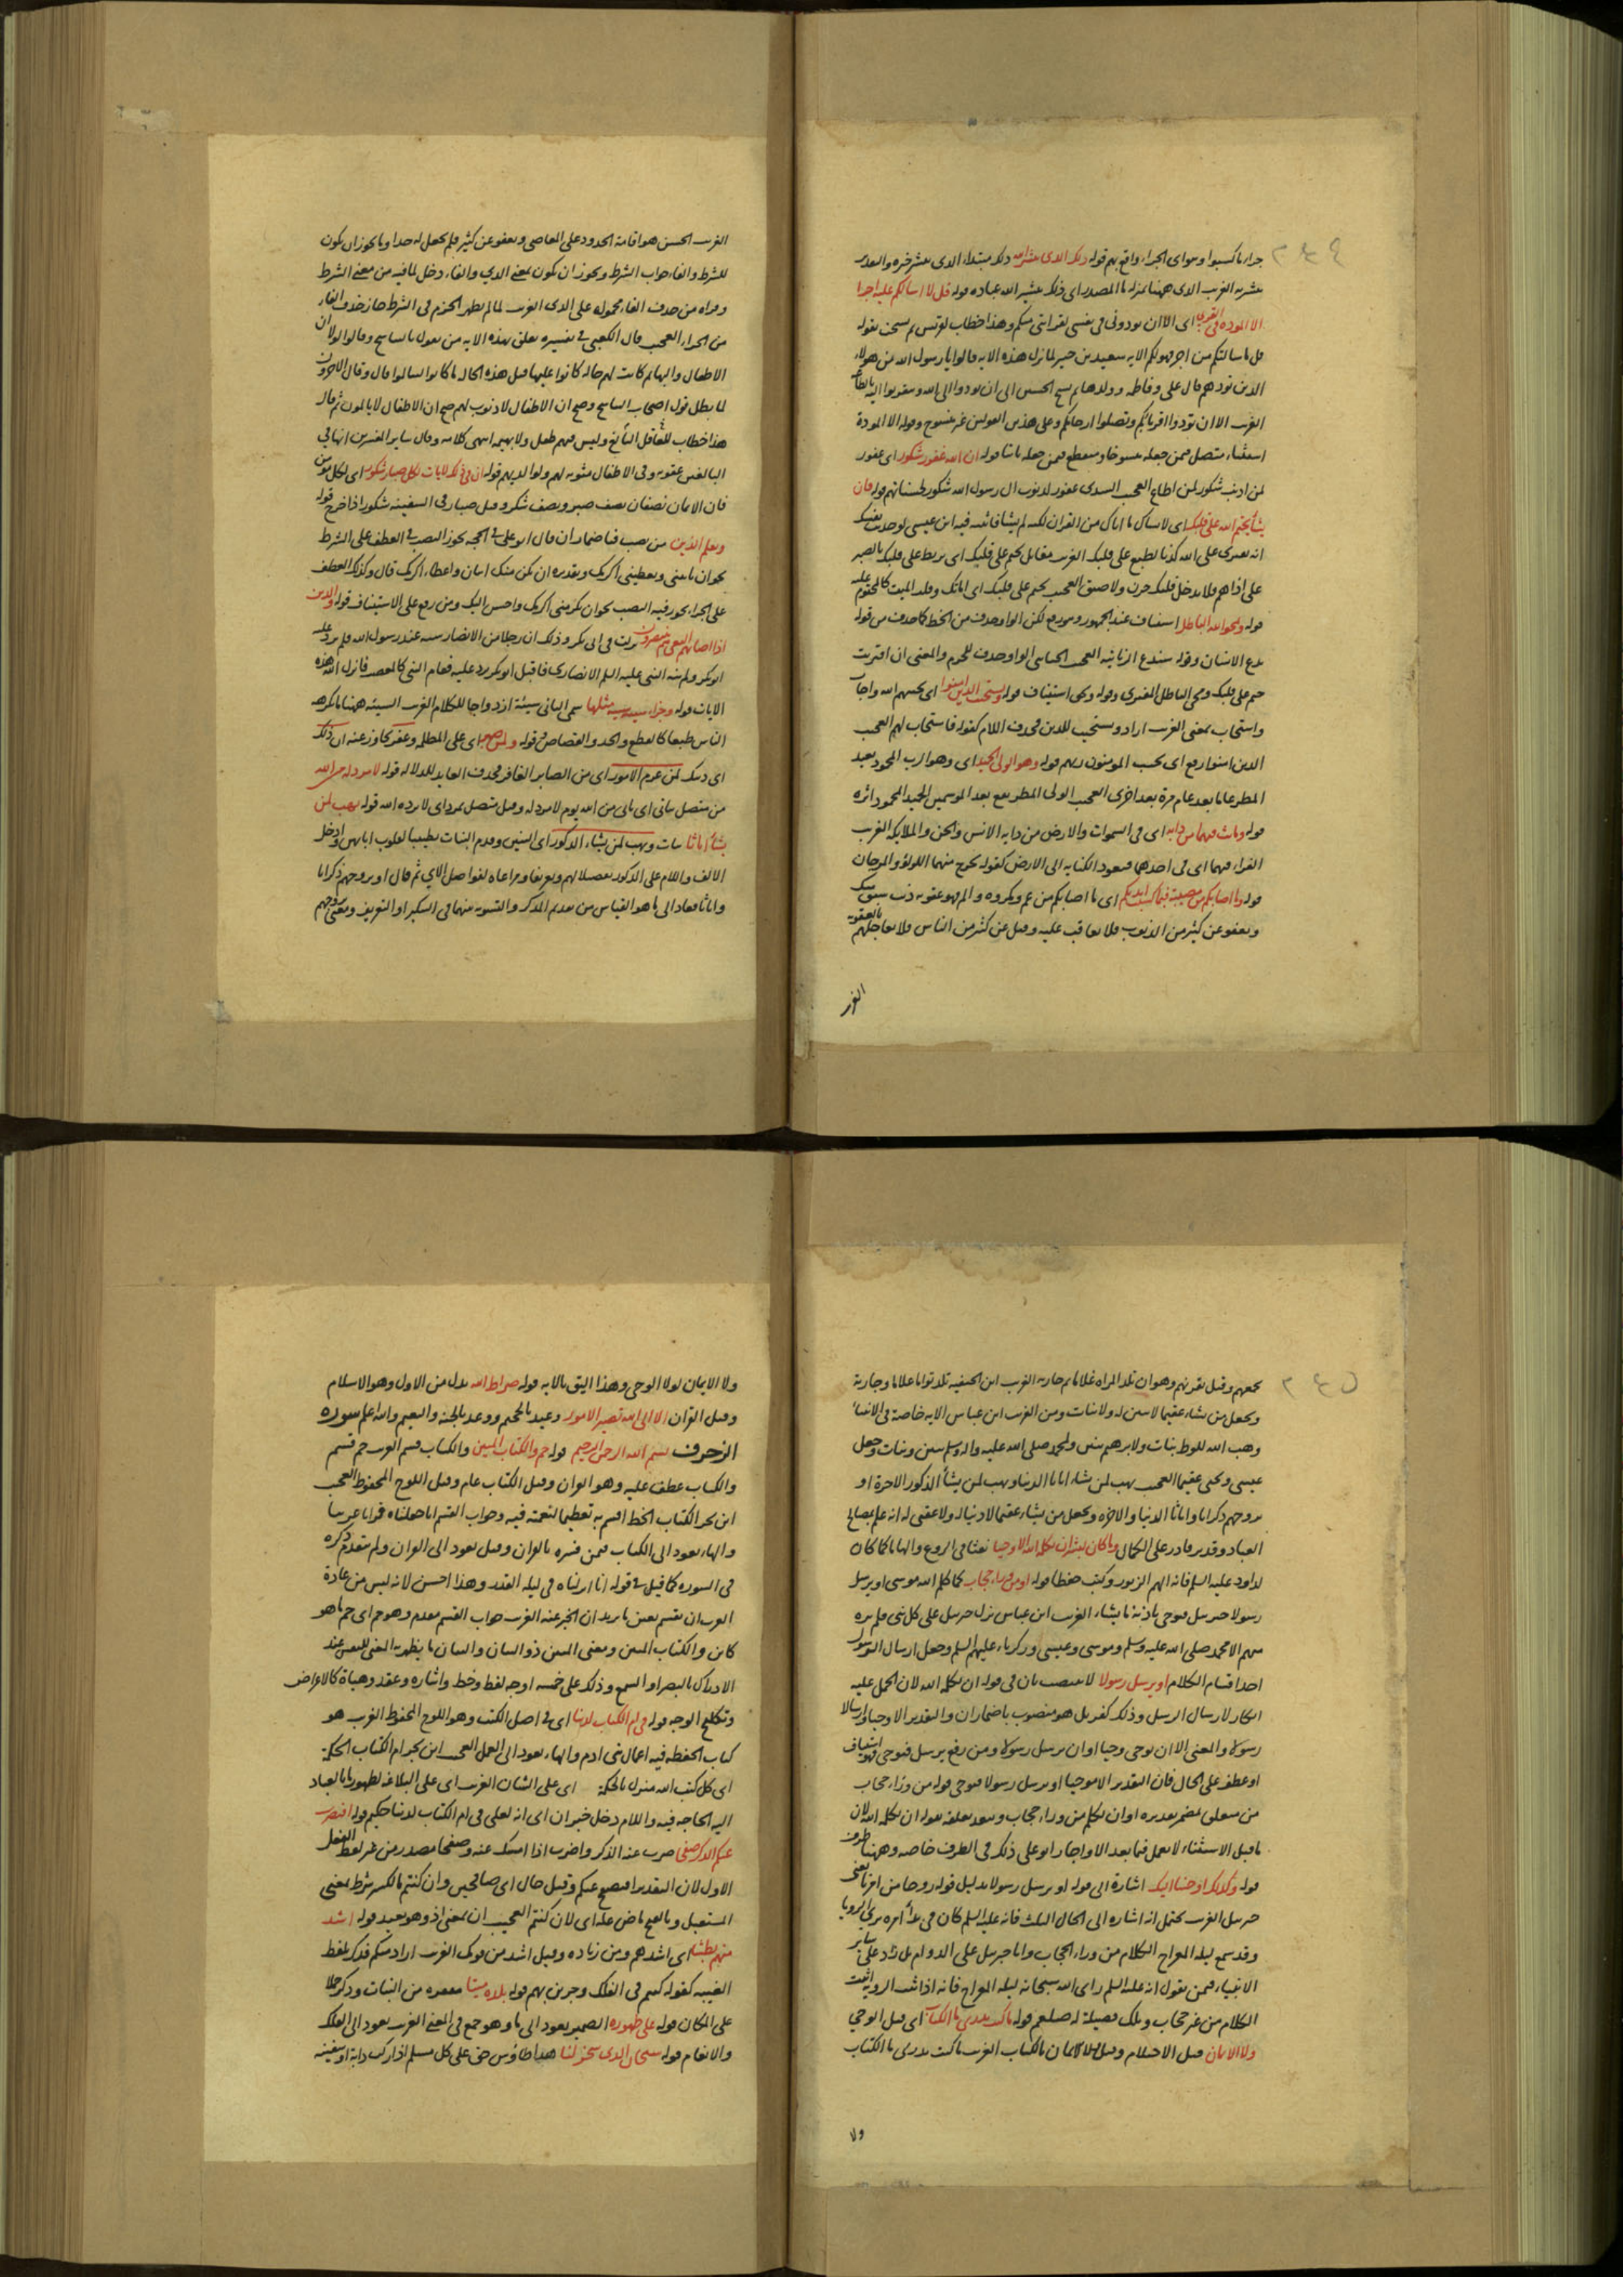 جزاء ما كسبوا وهو اى الجزاء واقع بهم قوله ذلك الذى يبشر الله ذلك مبتداء الذى يبشر خبره والتقدير
يبشر به الغريب الذى ههنا بمنزله ما المصدر اى ذلك تبشير الله عباده قوله قل لا اسالكم عليه اجرا
الا الموده فى القربى اى الا ان تودونى فى نفسى لقرابتى منكم وهذا خطاب لقريش ثم نسخت بقوله
قل ما سالتكم من اجر فهو لكم الايه سعيد بن جبير لما نزل هذه الايه قالوا يا رسول الله من هولاء
الذين نودهم قال على وفاطمه وولدهما الحسن الى ان تودوا الى الله وتتقربوا اليه بالطاعه
الغريب الا ان تودوا اقرباكم وتصلوا ارحامكم وعلى هذين القولين غير منسوخ وقوله الا المودة
استثناء متصل فيمن جعله منسوخا ومنقطع فيمن جعله ثابتا قوله ان الله غفور شكور اى غفور
لمن اذنب شكور لمن اطاع العجيب السدى غفور لذنوب ال رسول الله شكور لحسناتهم قوله فان
يشأ يختم الله على قلبك اى لانساك ما اتاك من القران لكنه لم يشا فاثبته فيه ابن عيسى لو حدثت نفسك
ان تفترى على الله كذبا لطبع على قلبك الغريب مقاتل يختم على قلبك اى يربط على قلبك بالصبر
على اذاهم فلا يدخل قلبك حزن ولا ضيق العجيب يختم على قلبك اى اماتك وقلب الميت كالمختوم عليه
قوله ويمح الله الباطل استيناف عند الجمهور وهو رفع لكن الواو حذف من الخط كما حذف من قوله
يدع الانسان وقوله سندع الزبانيه العجيب الواو حذف للجزم والمعنى ان افتريت
ختم على قلبك ومحى الباطل المفترى وقوله ويحق استيناف قوله ويستجيب الذين امنوا اى يجيبهم الله واجاب
واستجاب بمعنى الغريب اراد ويستجيب للذين فحذف اللام كقوله فاستجاب لهم العجيب
الذين امنوا رفع اى يجيب المومنون ربهم قوله وهو الولى الحميد اى وهو الرب المحمود بعيد
المطر عاما بعد عام مرة بعد اخرى العجيب الولى المطر يقع بعد الوسمى الحميد المحمود اثره
قوله وما بث فيهما من دابه اى فى السموات والارض من دابه الانس والجن والملايكه الغريب
الفراء فيهما اى فى احدهما فيعود الكنايه الى الارض كقوله يخرج منهما اللولؤ والمرجان
قوله وما اصابكم من مصيبة فبما كسبت ايديكم اى ما اصابكم من غم ومكروه والم فهو عقوبه ذنب سبق منك
ويعفو عن كثير من الذنوب فلا يعاقب عليه وقيل عن كثير من الناس فلا يعاجلهم بالعقوبه
الغر
الغريب الحسن هو اقامة الحدود على المعاصى ويعفو عن كثير فلم يجعل له حدا وما يجوز ان يكون
للشرط والفاء جواب الشرط ويجوز ان يكون بمعنى الذي والفاء دخل لما فيه من معنى الشرط
وقراه من حذف الفاء محموله على الذى الغريب لما لم يظهر الجزم فى الشرط جاز حذف الفاء
من الجزاء العجيب قال الكعبى فى تفسيره تعلق بهذه الايه من يقول بالتناسخ وقالوا لولا ان
الاطفال والبهايم كانت لهم حاله كانوا عليها قبل هذه الحال ما كانوا ليتالموا قال وقال الاخرون
لما بطل قول اصحاب التناسخ وصح ان الاطفال لا ذنوب لهم صح ان الاطفال لا يالمون ثم قال
هذا خطاب للعاقل البالغ وليس فيهم طفل ولا بهيمه انتهى كلامه وقال ساير المفسرين انها فى
البالغين عقوبه وفى الاطفال مثوبه لهم ولوالديهم قوله ان فى ذلك لايات لكل صبار شكور اى لكل مومن
فان الايمان نصفان نصف صبر ونصف شكر وقيل صبار فى السفينه شكور اذا خرج قوله
ويعلم الذين من نصب فباضمار ان قال ابو على فى الحجه يجوز النصب فى العطف على الشرط
نحو ان تاتنى وتعطينى اكرمك وتقديره ان يكن منك اتيان واعطاء اكرمك قال وكذلك العطف
على الجزاء يجوز فيه النصب نحو ان تكرمنى اكرمك واحسن اليك ومن رفع على الاستيناف قوله والذين
اذا اصابهم البغى هم ينتصرون نزلت فى ابى بكر وذلك ان رجلا من الانصار سبه عند رسول الله فلم يرد عليه
ابو بكر ولم ينه النبى عليه السلم الانصارى فاقبل ابو بكر يرد عليه فقام النبى كالمغضب فانزل الله هذه
الايات قوله وجزاء سيئه سيئة مثلها سمى الثانى سيئة ازدواجا للكلام الغريب السيئه ههنا ما يكرهه
الناس طبعا كالقطع والحد والقصاص قوله ولمن صبر اى على المظلمه وغفر تجاوز عنه ان ذلك
اى ذلك لمن عزم الامور اى من الصابر الغافر فحذف العايد للدلاله قوله لا مرد له من الله
من متصل بياتى اى ياتى من الله يوم لا مرد له وقيل متصل بمرد اى لا يرده الله قوله يهب لمن
يشاء اناثا بنات ويهب لمن يشاء الذكور اى البنين وقدم البنات تطييبا لقلوب ابائهن وادخل
الالف واللام على الذكور تفضيلا لهم وتعريفا ومراعاه لفواصل الاي ثم قال او يزوجهم ذكرانا
واناثا فعاد الى ما هو القياس من تقديم المذكر والتسويه بينهما فى التنكير او التعريف ومعنى يزوجهم
يجمعهم وقيل يقرنهم وهو ان تلد المراه غلاما ثم جاريه الغريب ابن الحنفيه تلد توأما غلاما وجارية
ويجعل من يشاء عقيما لا بنين له ولا بنات ومن الغريب ابن عباس الايه خاصة فى الانبياء
وهب الله للوط بنات ولابرهيم بنين ولمحمد صلى الله عليه واله وسلم بنين وبنات وجعل
عيسى ويحيى عقيما العجيب يهب لمن يشاء اناثا الدنيا ويهب لمن يشأ الذكور الاخرة او
يزوجهم ذكرانا واناثا الدنيا والاخره ويجعل من يشاء عقيما لا دنيا له ولا عقبى له انه عليم بمصالح
العباد وقدير قادر على الكمال وما كان لبشر ان يكلمه الله الا وحيا نفثا فى الروع والهاما كما كان
لداود عليه السلم فانه الهم الزبور وكتب حفظا قوله او من وراء حجاب كما كلم الله موسى او يرسل
رسولا جبرئيل فيوحى باذنه ما يشاء الغريب ابن عباس نزل جبرئيل على كل نبى فلم يره
منهم الا محمد صلى الله عليه وسلم وموسى وعيسى وزكرياء عليهم السلم وجعل ارسال الرسول
احد اقسام الكلام او يرسل رسولا لا ينتصب بان فى قوله ان يكلمه الله لان الحمل عليه
انكار لارسال الرسل وذلك كفر بل هو منصوب باضمار ان والتقدير الا وحيا وارسالا
رسولا والمعنى الا ان يوحى وحيا او ان يرسل رسولا ومن رفع يرسل فيوحى فهو استيناف
او عطف على الحال فان التقدير الا موحيا او يرسل رسولا فيوحى قوله من وراء حجاب
من متعلق بمضمر تقديره او ان يكلم من وراء حجاب ويبعد تعلقه بقوله ان يكلمه الله لان
ما قبل الاستثناء لا يعمل فيما بعد الا واجاز ابو على ذلك فى الظرف خاصه وههنا ظرف
قوله وكذلك اوحينا اليك اشارة الى قوله او يرسل رسولا بدليل قوله روحا من امرنا يعنى
جبرئيل الغريب يحتمل انه اشاره الى الحال الثلث فانه عليه السلم كان فى بدأ امره يرى الرويا
وقد سمع ليله المعراج الكلام من وراء الحجاب واتاه جبرئيل على الدوام بل زاد على ساير
الانبياء فيمن يقول انه عليه السلم راى الله سبحانه ليله المعراج فانه اذا ثبت الرويه اثبت
الكلام من غير حجاب وتلك فضيلة له صلعم قوله ما كنت تدرى ما الكتاب اى قبل الوحي
ولا الايمان قبل الاسلام وقيل اهل الايمان بالكتاب الغريب ما كنت تدرى ما الكتاب
ولا
ولا الايمان لولا الوحى وهذا اليق بالايه قوله صراط الله بدل من الاول وهو الاسلام
وقيل القران الا الى الله تصير الامور وعيد بالجحيم ووعد بالجنة والنعيم والله اعلم سوره
الزخرف بسم الله الرحمن الرحيم قوله حم والكتاب المبين والكتاب قسم الغريب حم قسم
والكتاب عطف عليه وهو القران وقيل الكتاب عام وقيل اللوح المحفوظ العجيب
ابن بحر الكتاب الخط اقسم به تعظيما لنعمته فيه وجواب القسم انا جعلناه قرانا عربيا
والهاء يعود الى الكتاب فيمن فسره بالقران وقيل يعود الى القران ولم يتقدم ذكره
فى السوره كما قيل فى قوله انا انزلناه فى ليله القدر وهذا احسن لانه ليس من عادة
العرب ان تقسم بعين ما يريد ان يخبر عنه الغريب جواب القسم مقدم وهو حم اى حم ما هو
كائن والكتاب المبين ومعنى المبين ذو البيان والبيان ما يظهر به المعنى للنفس عند
الادراك بالبصر او السمع وذلك على خمسه اوجه لفظ وخط واشاره وعقد وهيأة كالاعراض
وتكليح الوجه قوله فى ام الكتاب لدينا اى فى اصل الكتب وهو اللوح المحفوظ الغريب هو
كتاب الحفظه فيه اعمال بنى ادم والهاء يعود الى العمل العجيب ابن بحر ام الكتاب الحكمة
اى كل كتب الله منزله بالحكمة اى على الشان الغريب اى على البلاغه لظهور ما بالعباد
اليه الحاجه فيه واللام دخل خبر ان اى انه لعلى فى ام الكتاب لدينا حكيم قوله افنضرب
عنكم الذكر صفحا ضرب عنه الذكر واضرب اذا امسك عنه وصفحا مصدر من غير لفظ الفعل
الاول لان التقدير افنصفح عنكم وقيل حال اى صافحين وان كنتم بالكسر شرط بمعنى
المستقبل وبالفتح ماض علة اى لان كنتم العجيب ان بمعنى اذ وهو بعيد قوله اشد
منهم بطشا اى اشدهم ومن زياده وقيل اشد من قومك الغريب اراد منكم فذكر بلفظ
الغيبه كقوله كنتم فى الفلك وجرين بهم قوله بلده ميتا مقفره من النبات وذكر حملا
على المكان قوله على ظهوره الضمير يعود الى ما وهو جمع فى المعنى الغريب يعود الى الفلك
والانعام قوله سبحان الذى سخر لنا هذا طاوس حق على كل مسلم اذا ركب دابة او سفينه